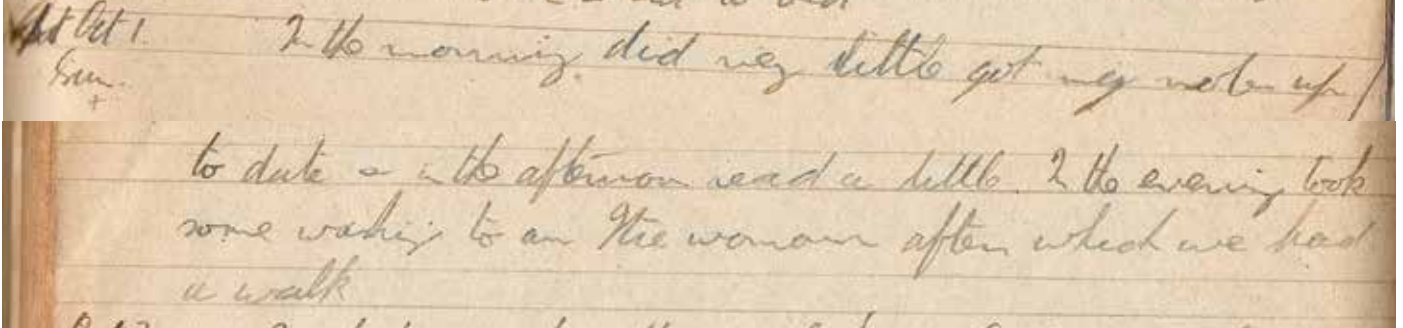 Oct 1. In the morning did very little got my notes up
Sun.
to date & in the afternoon read a little. In the evening took
some washing to an the woman after which we had
a walk